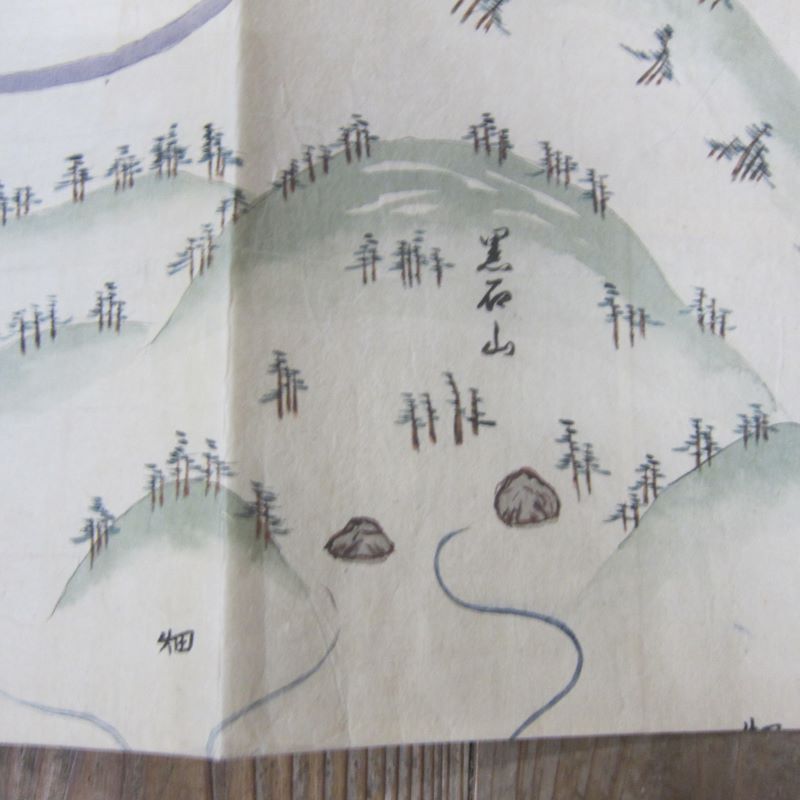 黒石山
畑